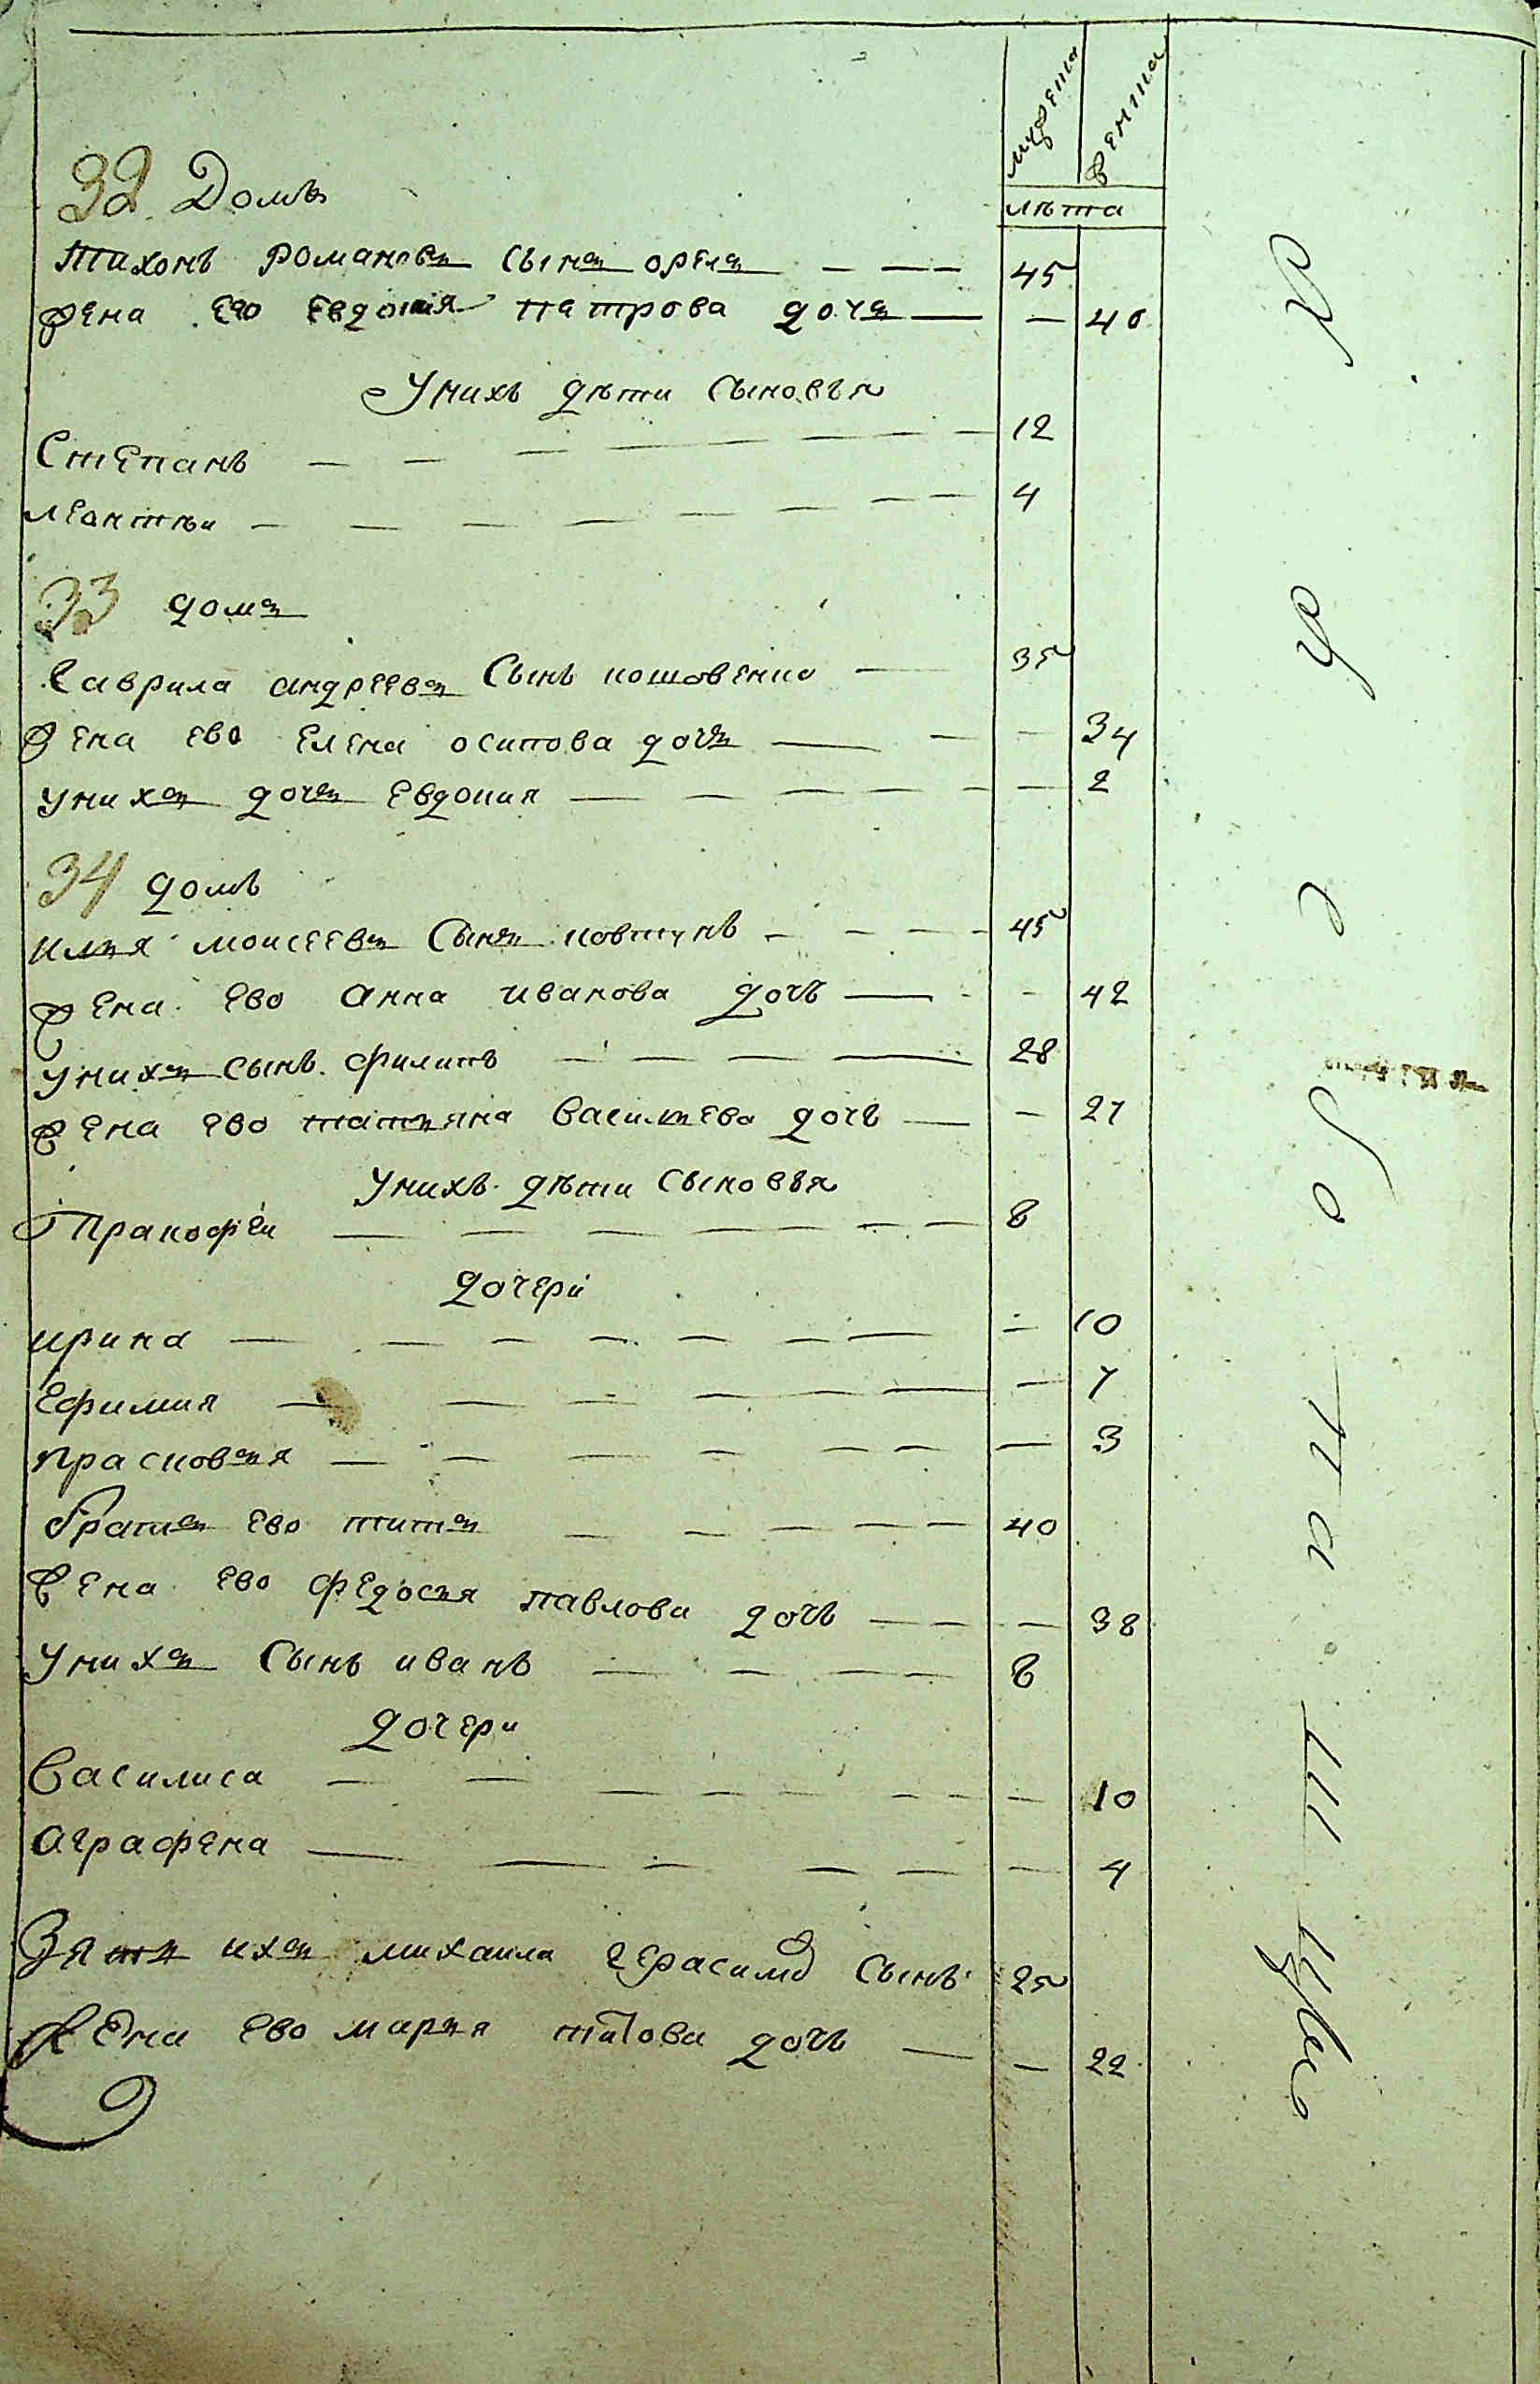 мужеска женска
лѣта
32 Домъ
Тихонъ романовъ сынъ орелъ — — — 45
жена его евдокия петрова дочь — — 40
Унихъ дѣти сыновья
Степанъ — — — 12
леонтѣи — — — 4
33 домъ
гаврила андреевъ сынъ кошовенко — 35
жена ево елена осипова дочь — — 34
унихъ дочь евдокия — — — 2
34 домъ
илья моисеевъ сынъ ковтунъ — — 45
жена ево анна иванова дочь — — 42
унихъ сынъ филипъ — — — 28
жена ево татьяна васильева дочь — — 27
унихъ дѣти сыновья
Пракофеи — — — 8
дочери
ирина — — — 10
ефимия — — — 7
прасковья — — — 3
братъ ево титъ — — — 40
жена ево федосья павлова дочь — — 38
унихъ сынъ иванъ — — — 8
дочери
василиса — — — 10
аграфена — — — 4
Зять ихъ михаила герасимо сынъ 25
жена ево марья титова дочь — — 22